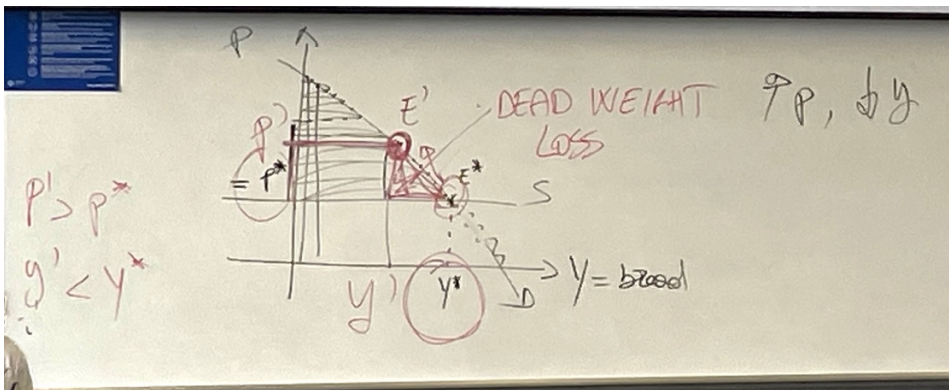 P
E'
DEAD WEIGHT
LOSS
↑P, ↓y
P'
= P*
E*
S
P' > P*
y' < y*
y'
y*
D
Y = bread